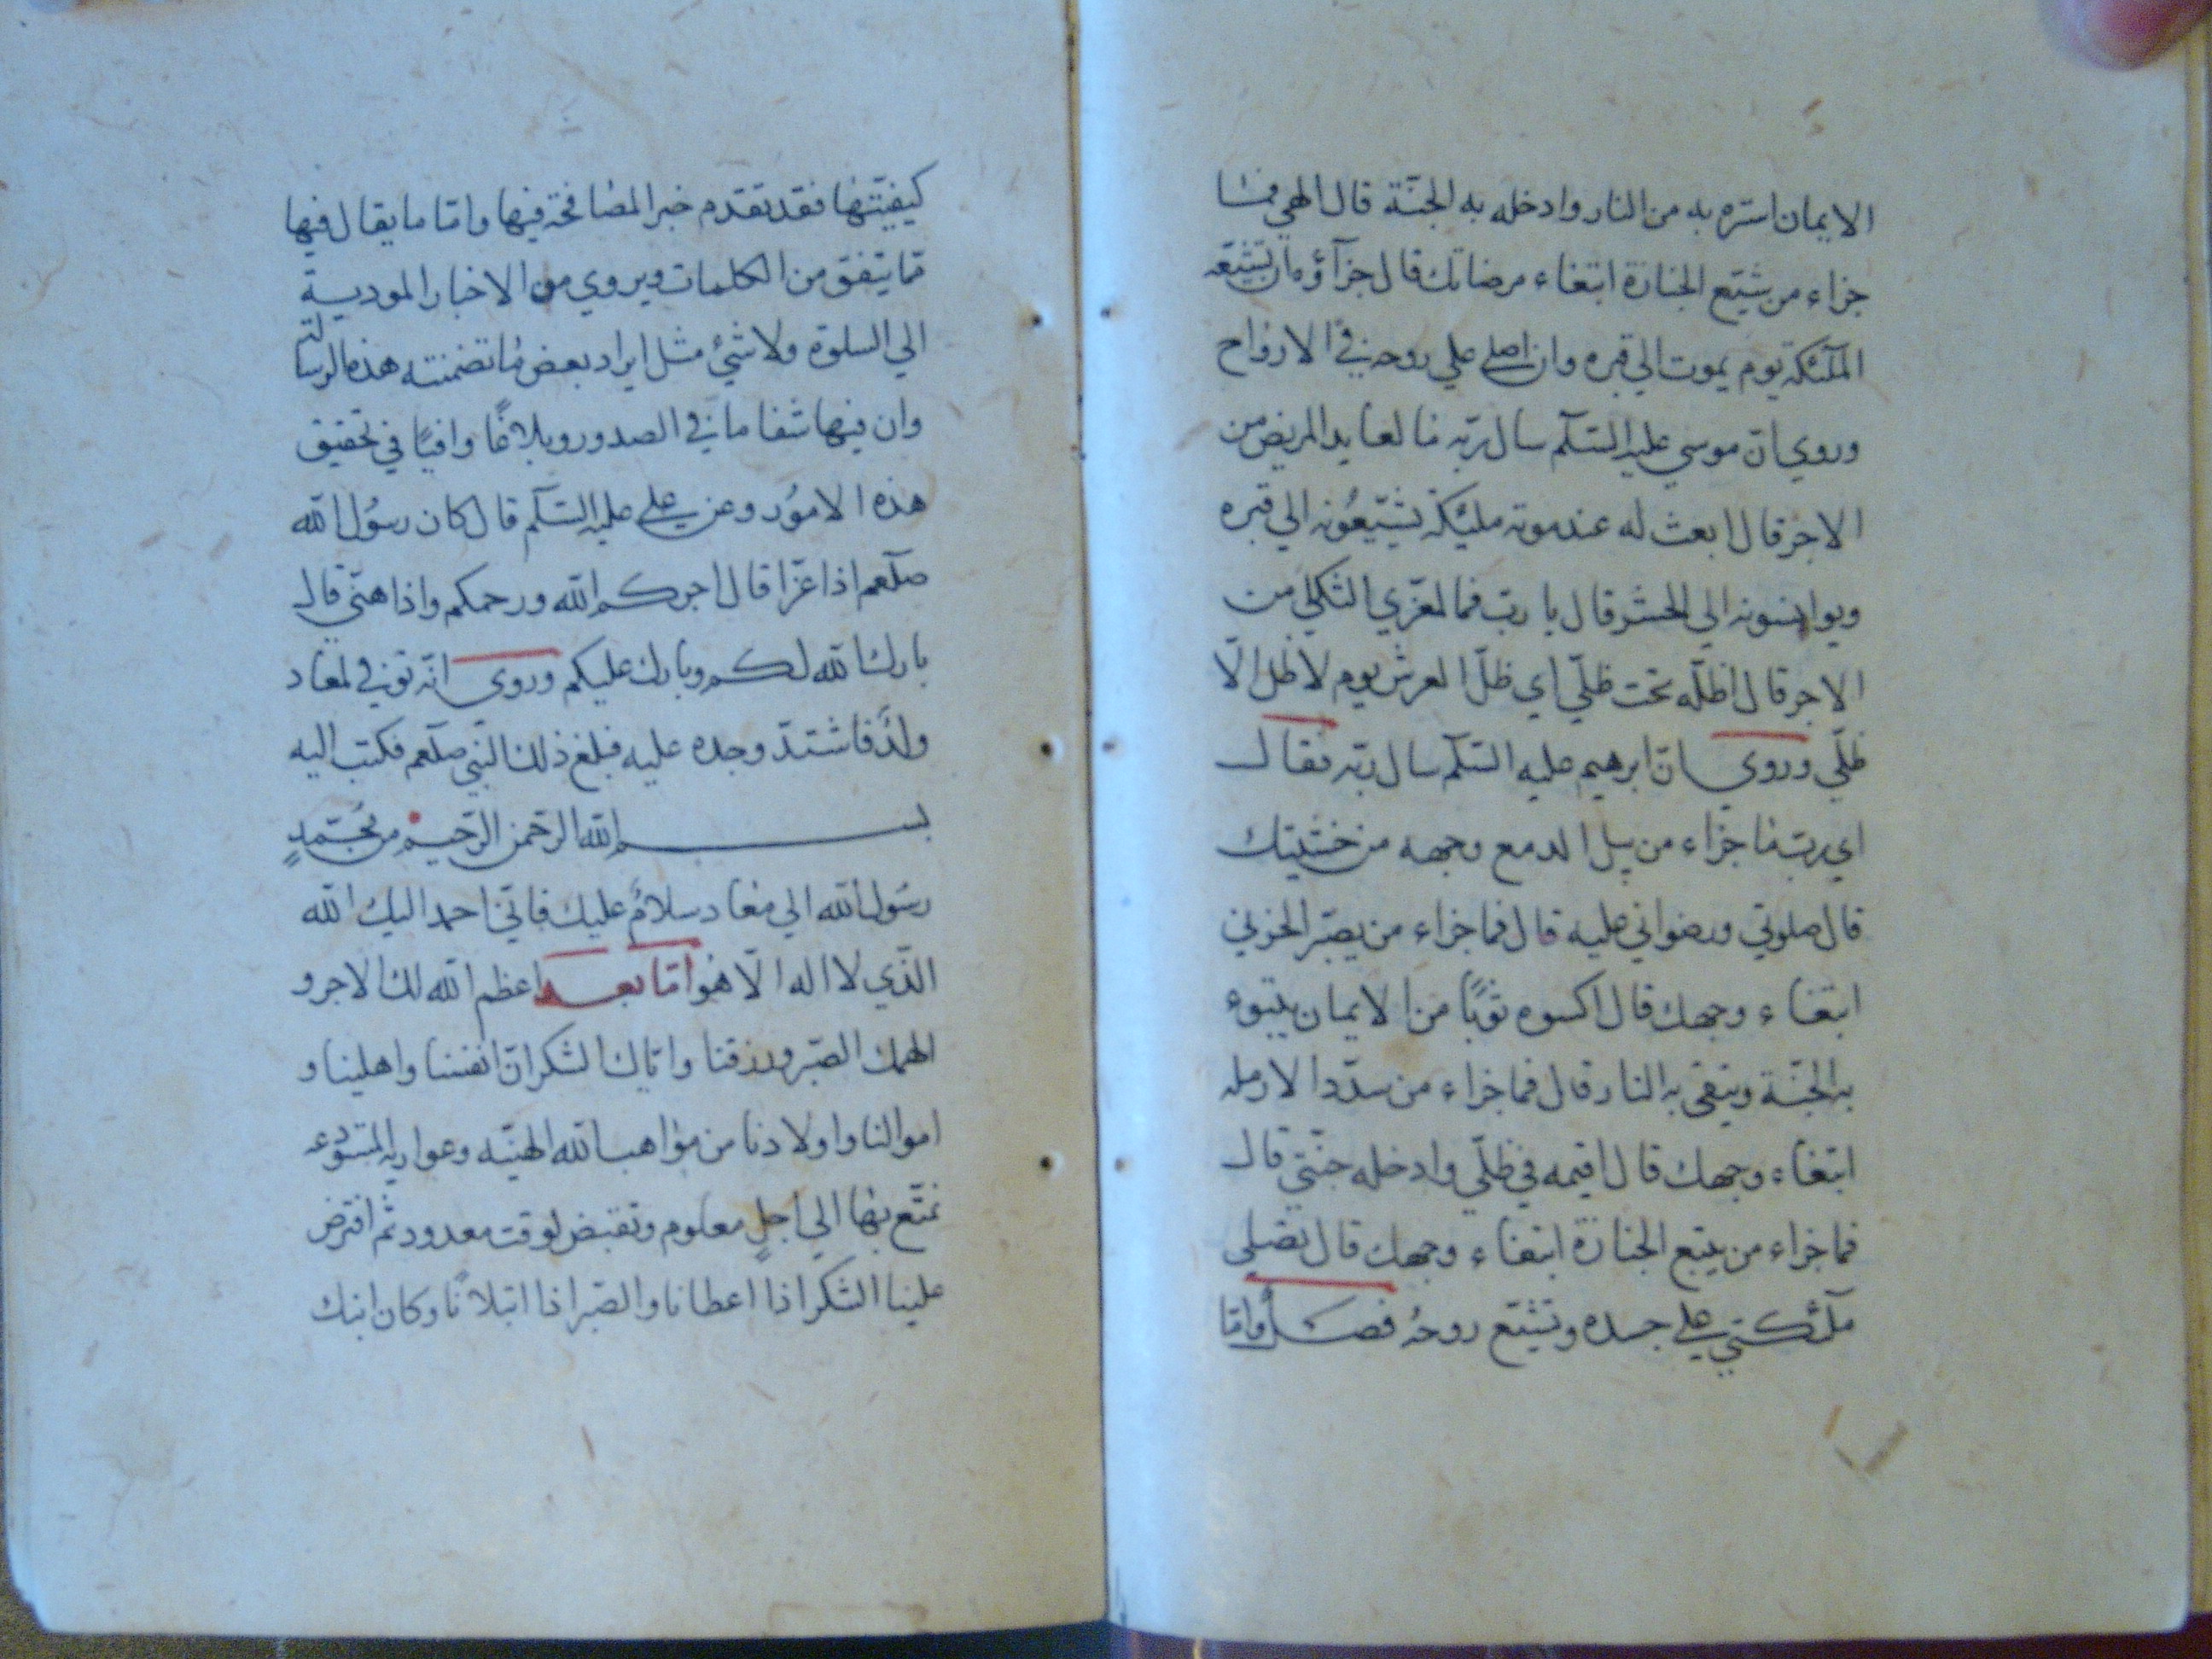 الايمان استره به من النار وادخله به الجنّة قال الهي فما
جزاء من شيّع الجنازة ابتغاء مرضاتك قال جزآؤه ان تشيّعه
الملٓئكة يوم يموت الي قبره وان اصلي علي روحه في الارواح
وروي انّ موسي عليه السّلٓم سال ربّه ما لعايد المريض من
الاجر قال ابعث له عند موته ملئكة يشيّعُونه الي قبره
ويوانسونه الي المحشر قال يا ربّ فما لمعزّي الثكلي من
الاجر قال اظلّه تحت ظلّي اي ظلّ العرش يوم لا ظل الّا
ظلّي وروي انّ ابرهيم عليه السّلٓم سال ربّه فقال
اي ربّ ما جزاء من يبل الدمع وجهه من خشيتك
قال صلوتي ورضواني عليه قال فما جزاء من يصبّر الحزين
ابتغاء وجهك قال اكسوه ثوبًا من الايمان يتبوء
به الجنّة ويتقي به النار قال فما جزاء من سدّد الارمله
ابتغاء وجهك قال اقيمه في ظلّي وادخله جنّتي قال
فما جزاء من يتبع الجنازة ابتغاء وجهك قال تصلي
ملٓئكتي علي جسده وتشيّع روحهُ فصلٌ وامّا
كيفيّتها فقد تقدم خبر المصافحة فيها وامّا ما يقال فيها
فما يتفق من الكلمات ويروي من الاخبار الموديية
الي السلوة ولا شيئ مثل ايراد بعض ما تضمنته هذه الرسالة
وان فيها شفا ما في الصدور وبلاغًا وافيًا في تحقيق
هذه الامُور وعن علي عليه السّلٓم قال كان رسُول الله
صلٓعم اذا عزّا قال اجركم الله ورحمكم واذا هنّي قال
بارك الله لكم وبارك عليكم وروى انّه توفي لمعاد
ولدٌ فاشتدّ وجده عليه فبلغ ذلك النّبي صلٓعم فكتب اليه
بسم الله الرّحمن الرّحيم من مُحمّدٍ
رسُول الله الي معاد سلامٌ عليك فانّي احمد اليك الله
الّذي لا اله الّا هُو امّا بعد اعظم الله لك الاجر و
الهمك الصّبر ورزقنا وايّاك الشكر انّ انفسنا واهلينا و
اموالنا واولادنا من مواهب الله الهنيّه وعواريه المستودعه
نمتّع بها الي اجلٍ معلوم وتقبض لوقت معدود ثم افترض
علينا الشكر اذا اعطانا والصّبر اذا ابتلانا وكان ابنك